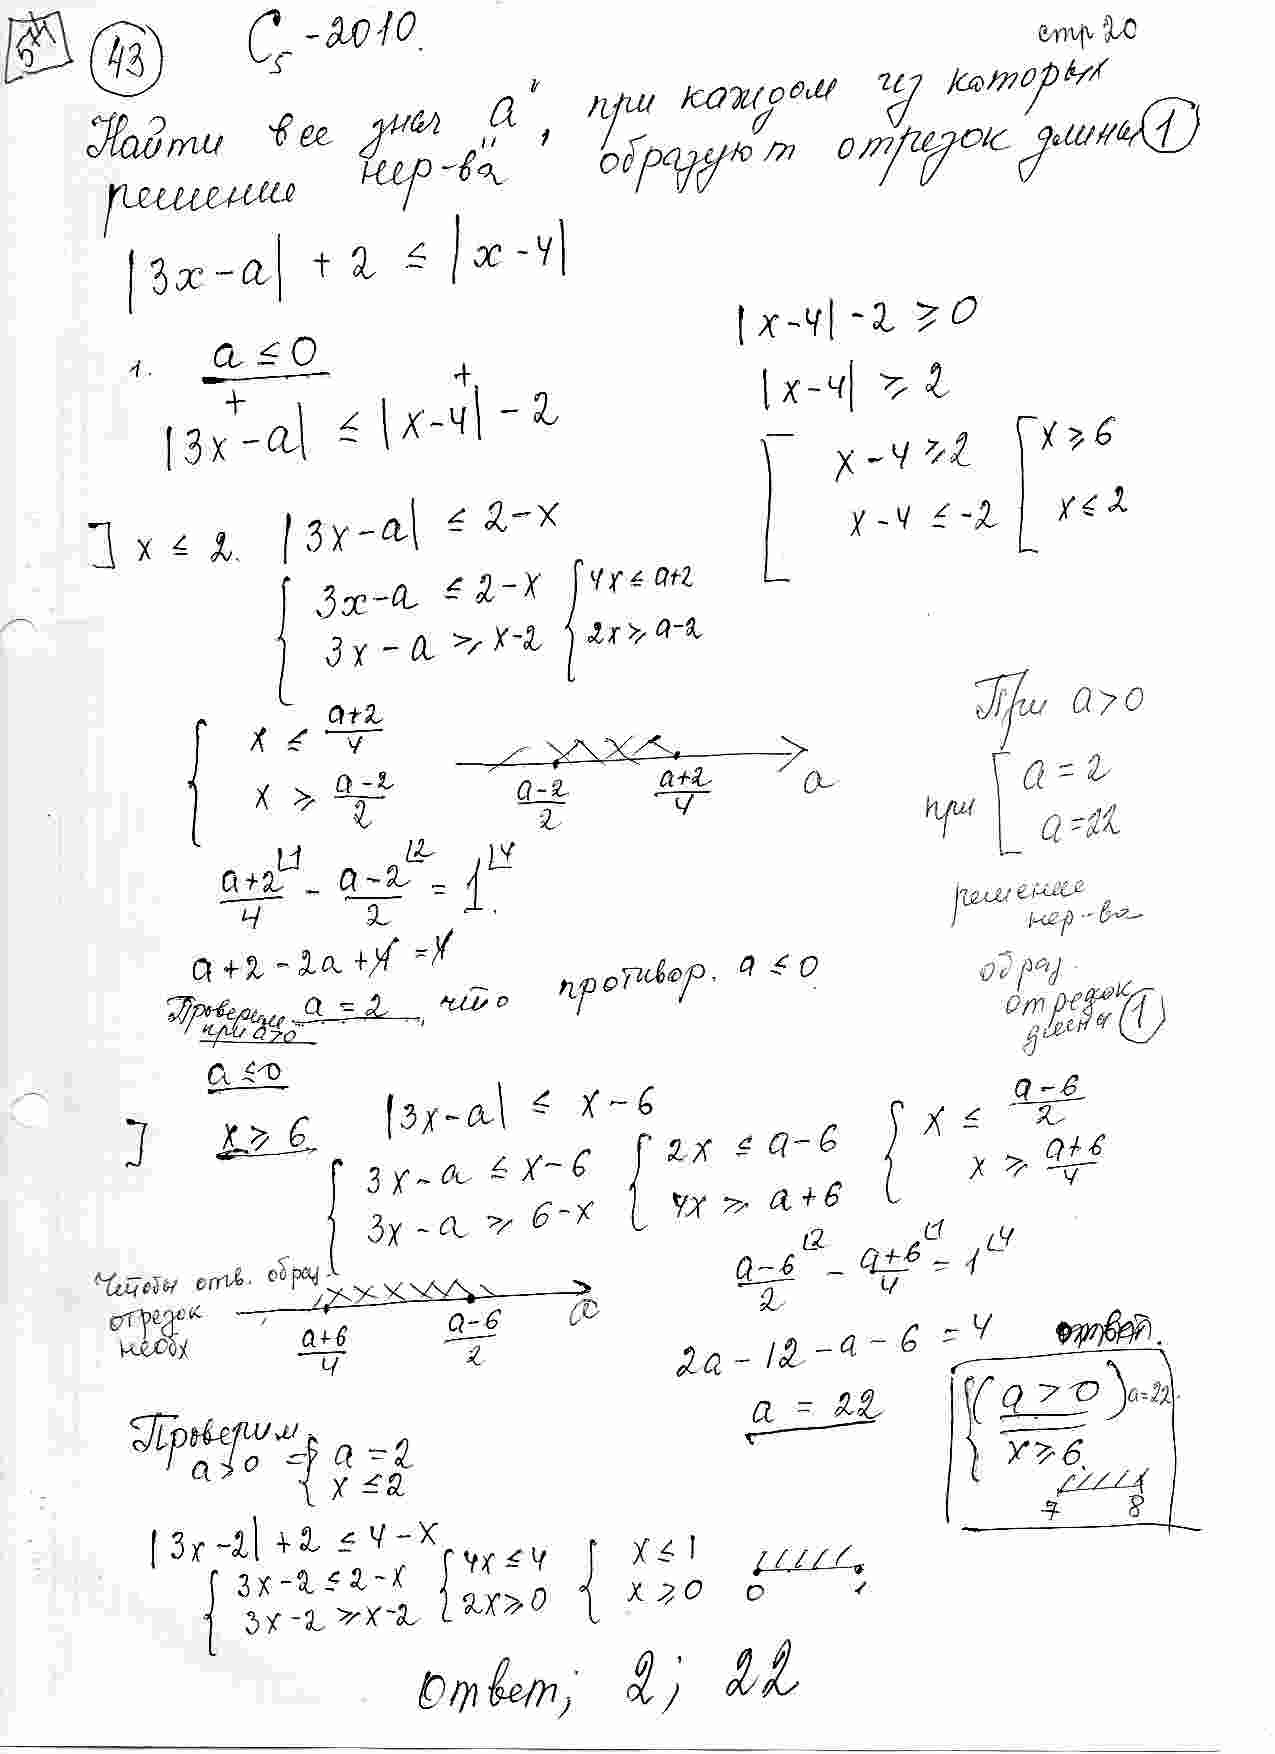 43
C5 - 2010.
стр 20
Найти все знач "a", при каждом из которых
решение нер-ва образуют отрезок длины 1
|3x-a| + 2 ≤ |x-4|
1. a ≤ 0
+ +
|3x-a| ≤ |x-4| - 2
|x-4| - 2 ≥ 0
|x-4| ≥ 2
[ x-4 ≥ 2 [ x ≥ 6
x-4 ≤ -2 x ≤ 2
] x ≤ 2. |3x-a| ≤ 2-x
{ 3x-a ≤ 2-x { 4x ≤ a+2
3x-a ≥ x-2 2x ≥ a-2
{ x ≤ (a+2)/4
x ≥ (a-2)/2
(a-2)/2 (a+2)/4 a
(a+2)/4 ∟1 - (a-2)/2 ∟2 = 1 ∟4
a+2-2a+4 = 4
Проверим при a>0 a = 2, что противор. a ≤ 0
При a>0
при [ a = 2
a = 22
решение
нер-ва
образ.
отрезок
длины 1
a ≤ 0
] x ≥ 6 |3x-a| ≤ x-6
{ 3x-a ≤ x-6 { 2x ≤ a-6 { x ≤ (a-6)/2
3x-a ≥ 6-x 4x ≥ a+6 x ≥ (a+6)/4
Чтобы отв. образ
отрезок
необх
(a+6)/4 (a-6)/2 a
(a-6)/2 ∟2 - (a+6)/4 ∟1 = 1 ∟4
2a-12-a-6 = 4
a = 22
ответ.
{ (a>0) a=22.
x ≥ 6.
7 8
Проверим
a>0 => { a = 2
x ≤ 2
|3x-2| + 2 ≤ 4-x
{ 3x-2 ≤ 2-x { 4x ≤ 4 { x ≤ 1
3x-2 ≥ x-2 2x ≥ 0 x ≥ 0
0 1
Ответ; 2; 22